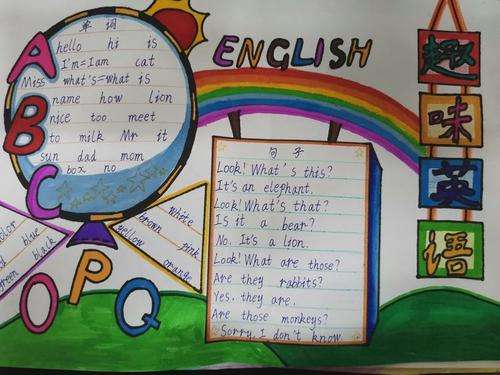 ENGLISH
趣味英语
A
B
C
单词
hello hi is
I'm=I am cat
Miss what's=what is
name how lion
nice too meet
to milk Mr it
sun dad mom
box no
blue
black
green
white
brown
pink
yellow
orange
O
P
Q
句子
Look! What's this?
It's an elephant.
Look! What's that?
Is it a bear?
No. It's a lion.
Look! What are those?
Are they rabbits?
Yes, they are.
Are those monkeys?
Sorry, I don't know.